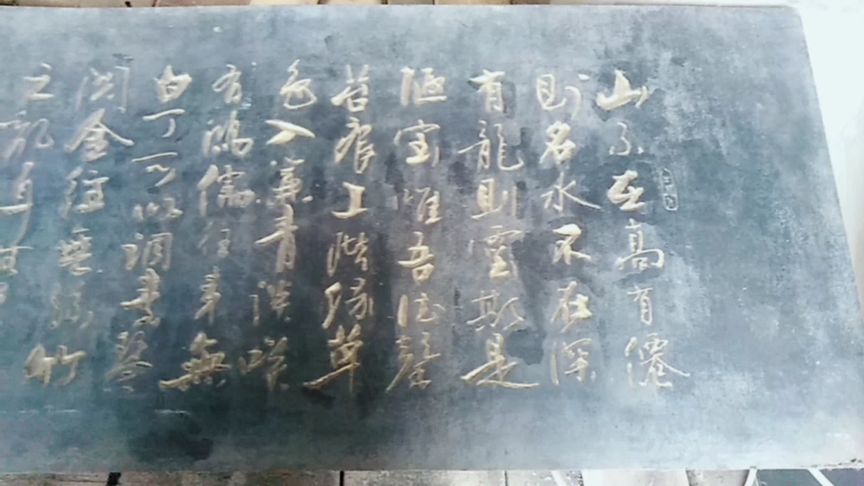 山不在高有僊
則名水不在深
有龍則靈斯是
陋室惟吾德馨
苔痕上階緑草
色入簾青談咲
有鴻儒往来無
白丁可以調素琴
閲金經無絲竹
之亂耳無